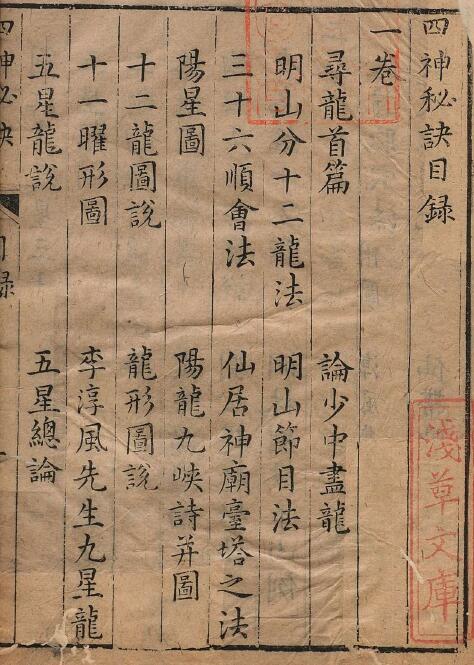 四神秘訣目録
一卷
尋龍首篇 論少中盡龍
明山分十二龍法 明山節目法
三十六順會法 仙居神廟臺塔之法
陽星圖 陽龍九峽詩并圖
十二龍圖說 龍形圖說
十一曜形圖 李淳風先生九星龍
五星龍說 五星總論
四神秘訣 目録
淺草文庫